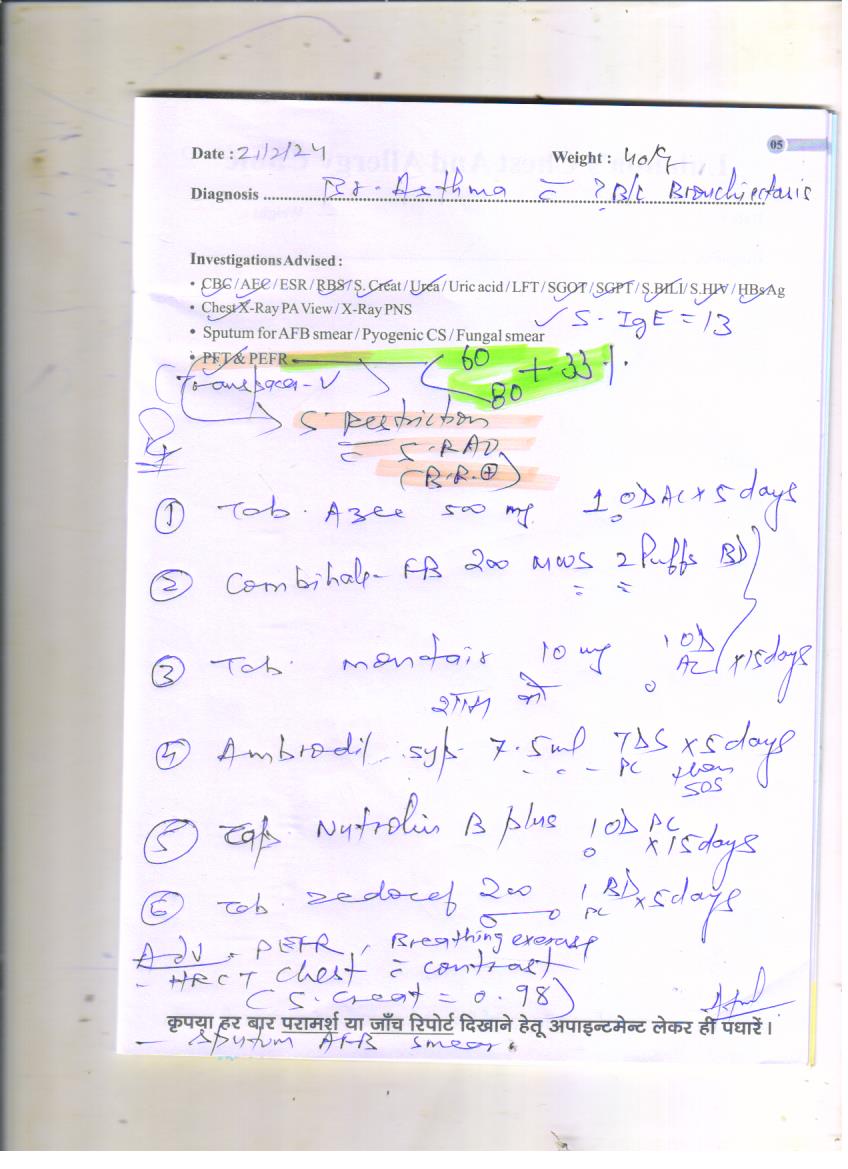 05
Date : 21/2/24 Weight : 40 kg
Diagnosis Br. Asthma = ? B/L Bronchiectasis
Investigations Advised :
• CBC / AEC / ESR / RBS / S. Creat / Urea / Uric acid / LFT / SGOT / SGPT / S.BILI / S.HIV / HBsAg
• Chest X-Ray PA View / X-Ray PNS
✓ S. IgE = 13
• Sputum for AFB smear / Pyogenic CS / Fungal smear
• PFT & PEFR 60
80 + 33 %.
S. Restriction
= S. RAD
(B.R. ⊕)
① Tab. Azee 500 mg 1 OD AC x 5 days
② Combihale-FB 200 2 Puffs BD
③ Tab. Montair 10 mg 1 OD AC x 15 days
शाम को
④ Ambrodil syp 7.5ml TDS x 5 days
PC then SOS
⑤ Cap Nutrolin B plus 1 OD PC
x 15 days
⑥ Tab. Zedocef 200 1 BD x 5 days
PC
Adv. PEFR, Breathing exercise
- HRCT chest = contrast
(S. Creat = 0.98)
कृपया हर बार परामर्श या जाँच रिपोर्ट दिखाने हेतू अपाइन्टमेन्ट लेकर ही पधारें।
- Sputum AFB smear.